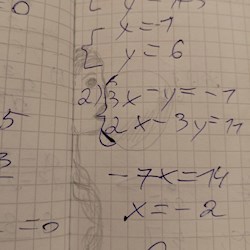 0
y = n+3
x = 1
y = 6
2) 3x - y = -1
2x - 3y = 11
5
3
-7x = 14
x = -2
= 0